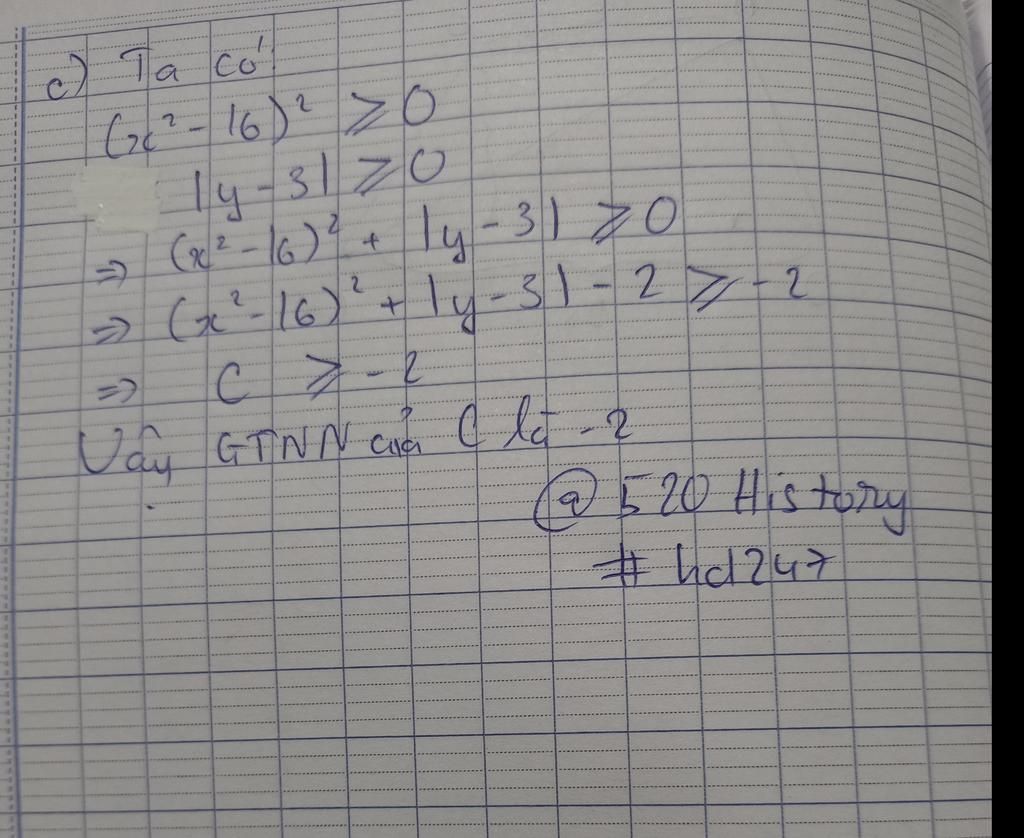 c) Ta có:
(x² - 16)² ⩾ 0
|y - 3| ⩾ 0
=> (x² - 16)² + |y - 3| ⩾ 0
=> (x² - 16)² + |y - 3| - 2 ⩾ -2
=> C ⩾ -2
Vậy GTNN của C là -2
@ 520 History
# hd247